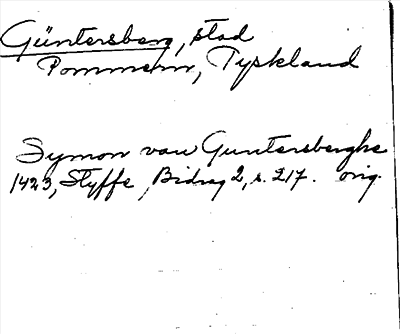 Güntersberg, stad
Pommern, Tyskland
Symon van Guntersberghe
1423, Styffe, Bidrag 2, s. 217. orig.